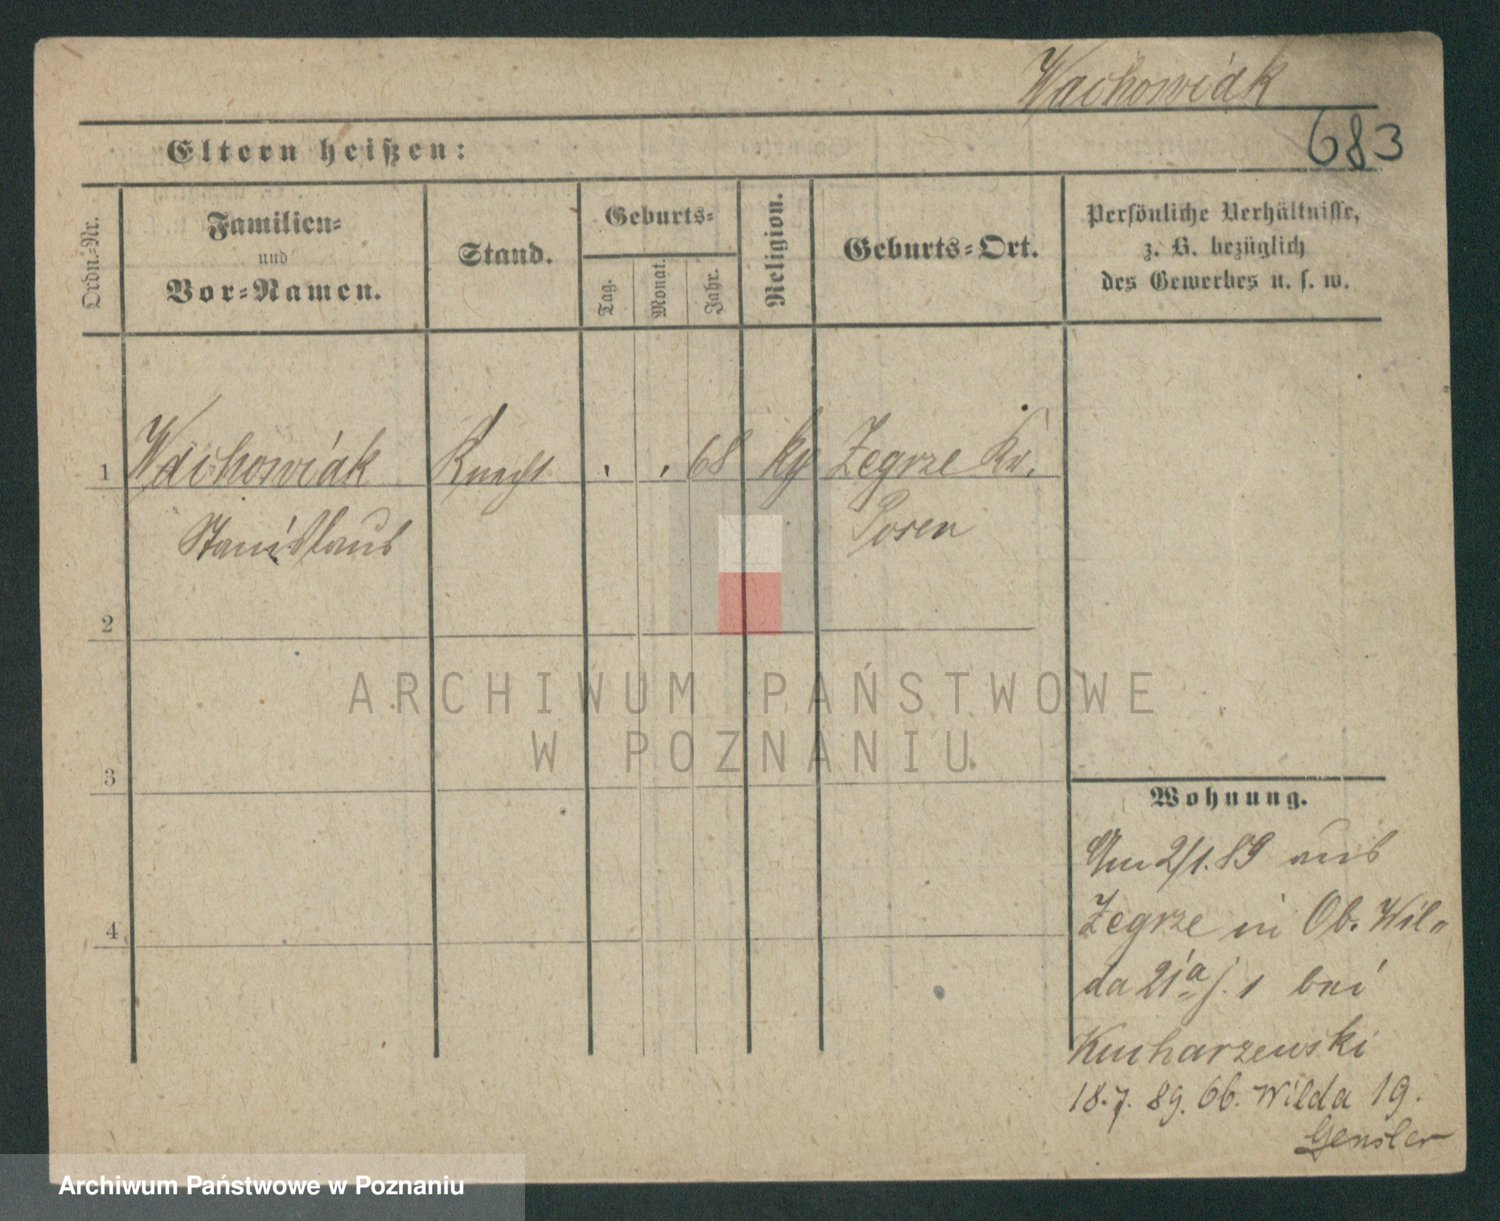 Wachowiak
683
Eltern heißen:
Ordn.-Nr.
Familien-
und
Vor-Namen.
Stand.
Geburts-
Tag.
Monat.
Jahr.
Religion.
Geburts-Ort.
Persönliche Verhältnisse,
z. B. bezüglich
des Gewerbes u. s. w.
1 Wachowiak Knecht . . 68 Zegrze Kr.
Stanislaus Posen
2
3
4
ARCHIWUM PAŃSTWOWE
W POZNANIU
Wohnung.
Am 2/1. 89 aus
Zegrze in Ob. Wil-
da 21a j. 1 bei
Kucharzewski
18.7. 89. Ob. Wilda 19.
Gensler
Archiwum Państwowe w Poznaniu